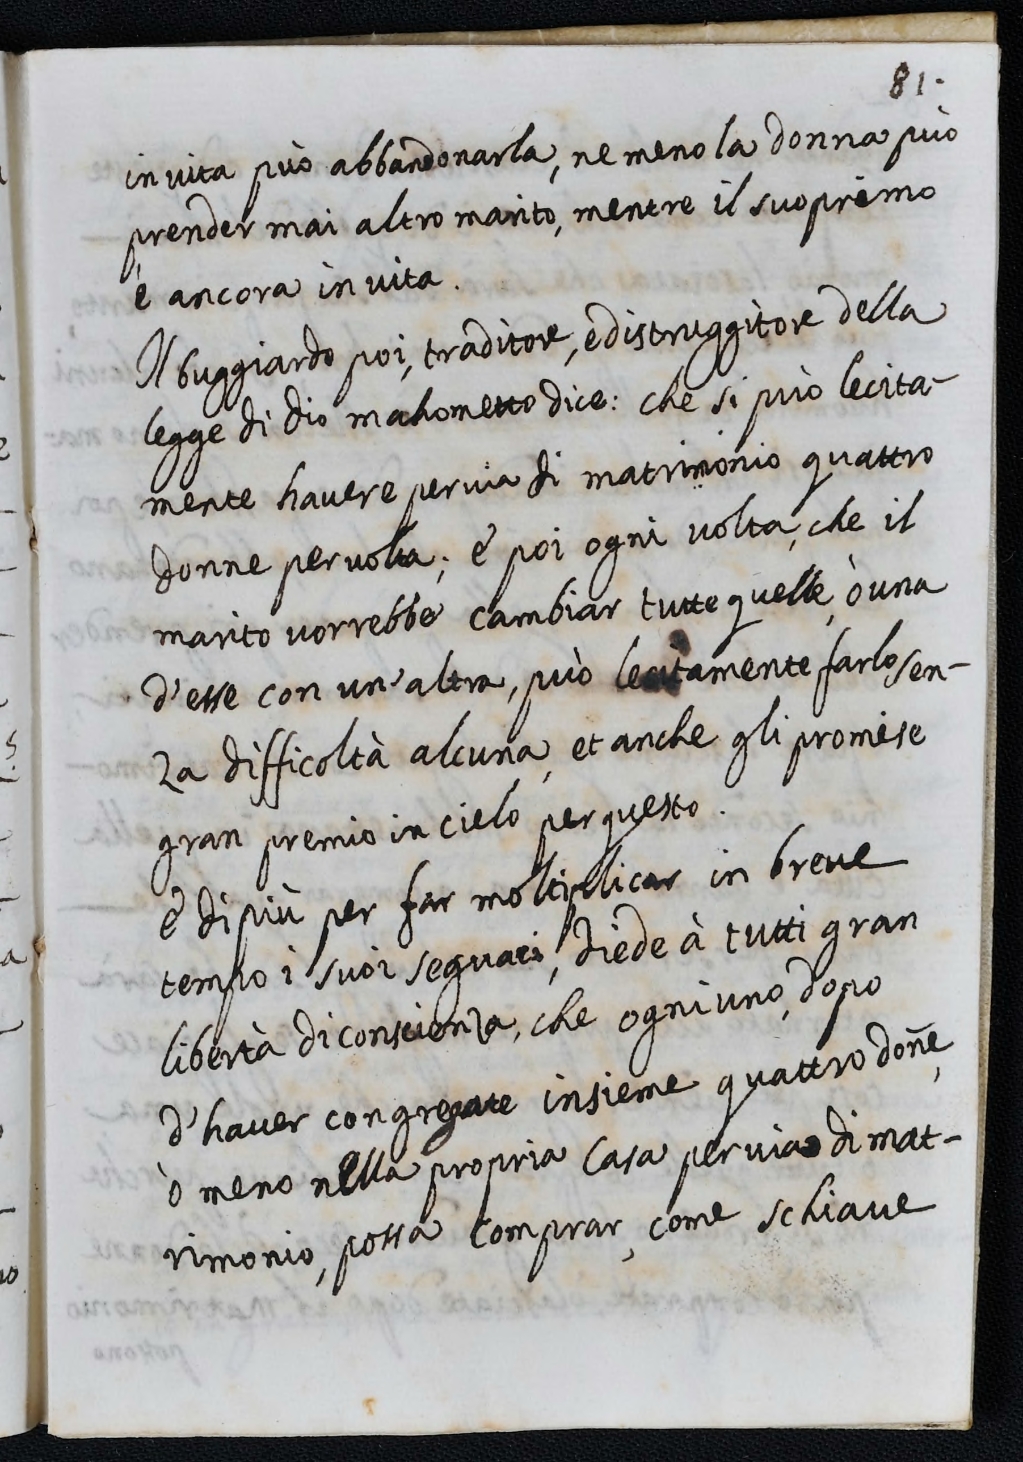 81.
in vita può abbandonarla, ne meno la donna può
prender mai altro marito, mentre il suo primo
è ancora in vita.
Il buggiardo poi, traditore, e distruggitore della
legge di Dio mahometto dice: che si può lecita-
mente havere per via di matrimonio quattro
donne per volta; e poi ogni volta, che il
marito vorrebbe cambiar tutte quelle, ò una
d'esse con un'altra, può lecitamente farlo sen-
za difficoltà alcuna, et anche gli promise
gran premio in cielo per questo.
E di più per far moltiplicar in breve
tempo i suoi seguaci, diede à tutti gran
libertà di conscienza, che ogni uno, dopo
d'haver congregate insieme quattro doñe,
ò meno nella propria casa per via di mat-
rimonio, possa comprar, come schiave